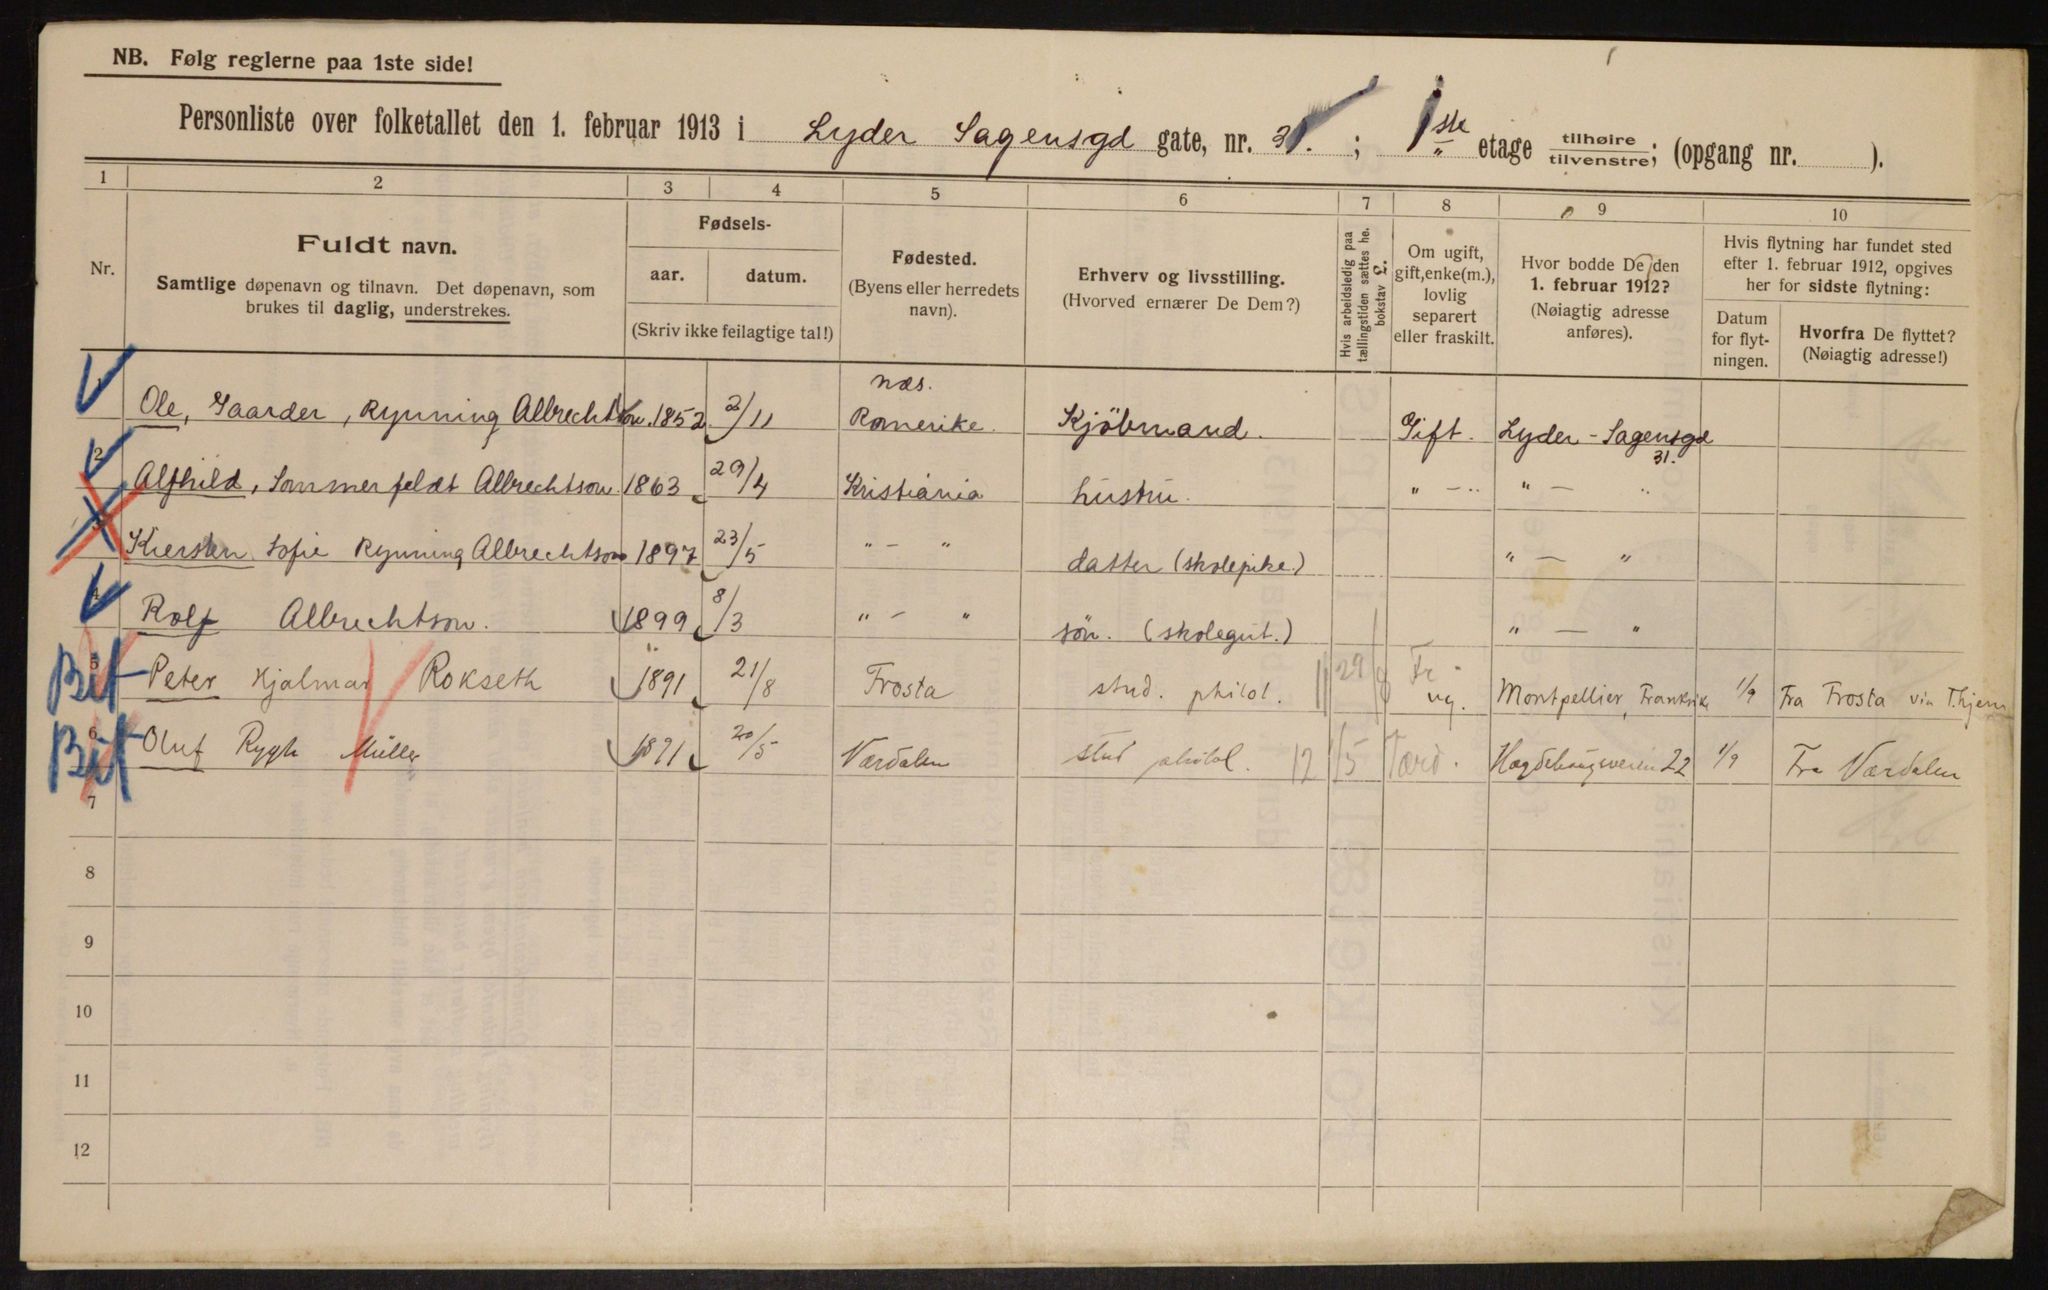 NB. Følg reglerne paa 1ste side!
Personliste over folketallet den 1. februar 1913 i Lyder Sagensgd gate, nr. 31. ; 1ste etage tilhøire tilvenstre; (opgang nr. ).
1 2 3 4 5 6 7 8 9 10
Nr.
Fuldt navn.
Samtlige døpenavn og tilnavn. Det døpenavn, som
brukes til daglig, understrekes.
Fødsels-
aar. datum.
(Skriv ikke feilagtige tal!)
Fødested.
(Byens eller herredets
navn).
Erhverv og livsstilling.
(Hvorved ernærer De Dem?)
Hvis arbeidsledig paa
tællingstiden sættes he.
bokstav L.
Om ugift,
gift, enke(m.),
lovlig
separert
eller fraskilt.
Hvor bodde De den
1. februar 1912?
(Nøiagtig adresse
anføres).
Hvis flytning har fundet sted
efter 1. februar 1912, opgives
her for sidste flytning:
Datum
for flyt-
ningen.
Hvorfra De flyttet?
(Nøiagtig adresse!)
1 Ole, Gaarder, Rynning Albrechtson. 1852 2/11 Næs. Romerike. Kjöbmand. Gift. Lyder-Sagensgd 31.
2 Alfhild, Sommerfeldt Albrechtson. 1863 29/4 Kristiania hustru. " - " " - "
3 Kiersten Sofie Rynning Albrechtson 1897 23/5 " - " datter (skolepike.) " - "
4 Rolf Albrechtson. 1899 8/3 " - " sön. (skolegut.) " - "
5 Bif Peter Hjalmar Rokseth 1891 21/8 Frosta stud. philol. 11 29/8 Fr ug. Montpellier, Frankrike 1/9 Fra Frosta via Thjem
6 Bif Oluf Rygh Müller 1891 20/5 Værdalen stud philol. 12 1/5 Værd. Hægdehaugsveien 22 1/9 Fra Værdalen
7
8
9
10
11
12